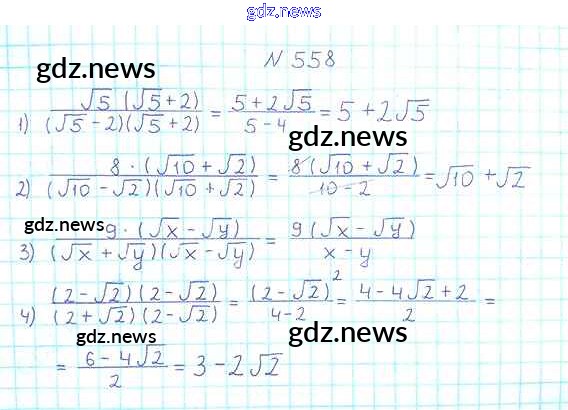 gdz.news
N 558
gdz.news
1) √5 (√5+2) / (√5-2)(√5+2) = 5+2√5 / 5-4 = 5+2√5
gdz.news
2) 8·(√10+√2) / (√10-√2)(√10+√2) = 8(√10+√2) / 10-2 = √10+√2
gdz.news
3) 9·(√x-√y) / (√x+√y)(√x-√y) = 9(√x-√y) / x-y
4) (2-√2)(2-√2) / (2+√2)(2-√2) = (2-√2)² / 4-2 = 4-4√2+2 / 2 =
gdz.news
gdz.news
= 6-4√2 / 2 = 3-2√2